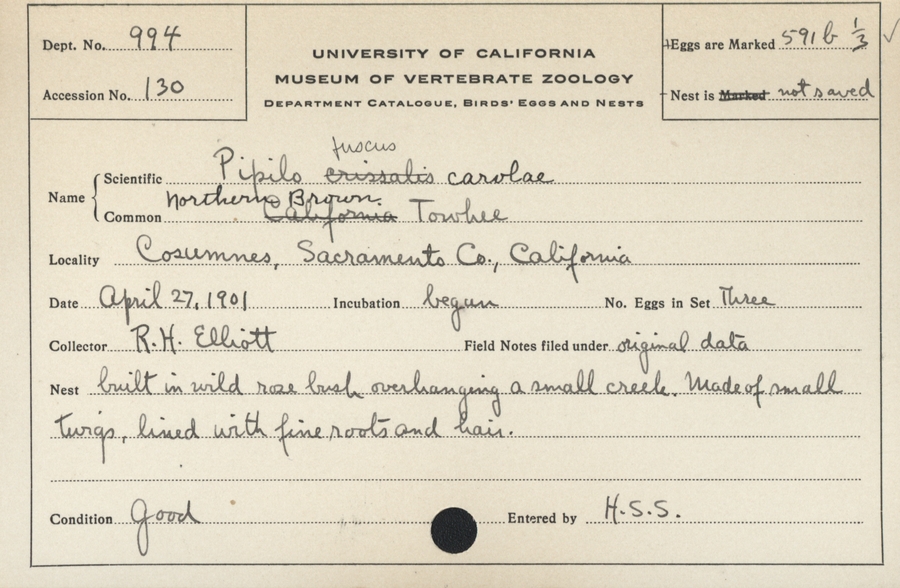 Dept. No. 994
Accession No. 130
UNIVERSITY OF CALIFORNIA
MUSEUM OF VERTEBRATE ZOOLOGY
DEPARTMENT CATALOGUE, BIRDS' EGGS AND NESTS
Eggs are Marked 591b 1/3 ✓
Nest is Marked not saved
fuscus
Name Scientific Pipilo crissalis carolae
Northern Brown.
Common California Towhee
Locality Cosumnes, Sacramento Co., California
Date April 27, 1901 Incubation begun No. Eggs in Set Three
Collector R. H. Elliott Field Notes filed under original data
Nest built in wild rose bush overhanging a small creek. Made of small
twigs, lined with fine roots and hair.
Condition good Entered by H.S.S.